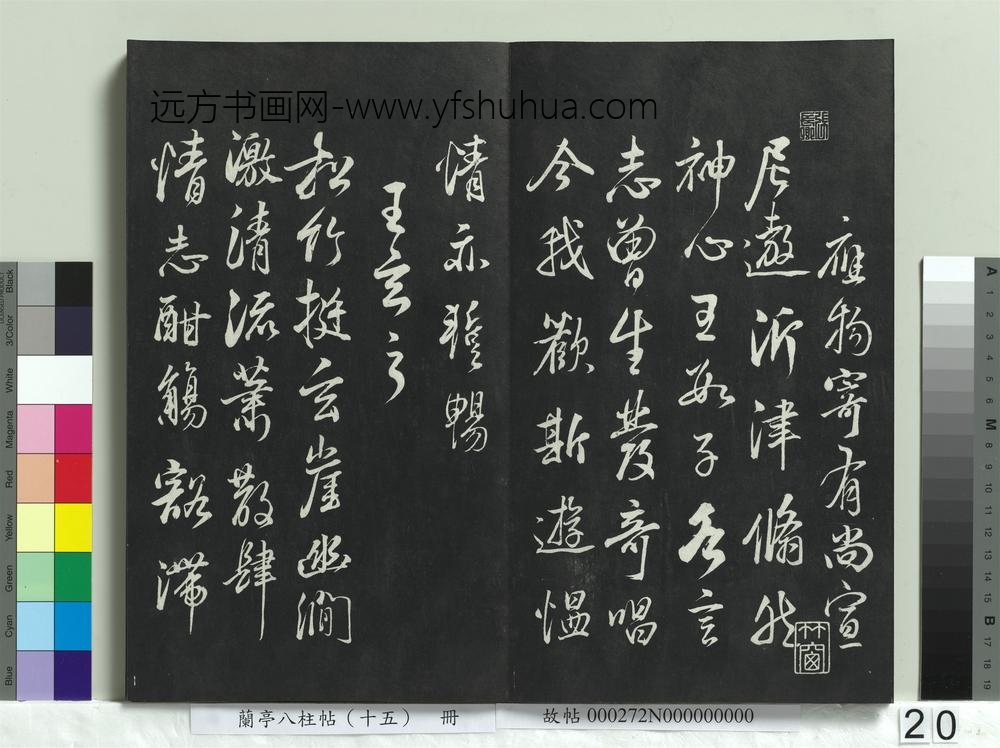 远方书画网-www.yfshuhua.com
應物寄有尚宣
尼遨沂津翛然
神心王數子各言
志曾生發奇唱
今我歡斯遊慍
情亦蹔暢
王玄之
松竹挺玄崖幽澗
激清流蕭散肆
情志酣觴豁滯
竹窗
蘭亭八柱帖（十五） 冊
故帖 000272N000000000
20
Black
3/Color
White
Magenta
Red
Yellow
Green
Cyan
Blue
A
1
2
3
4
5
6
M
8
9
10
11
12
13
14
15
B
17
18
19